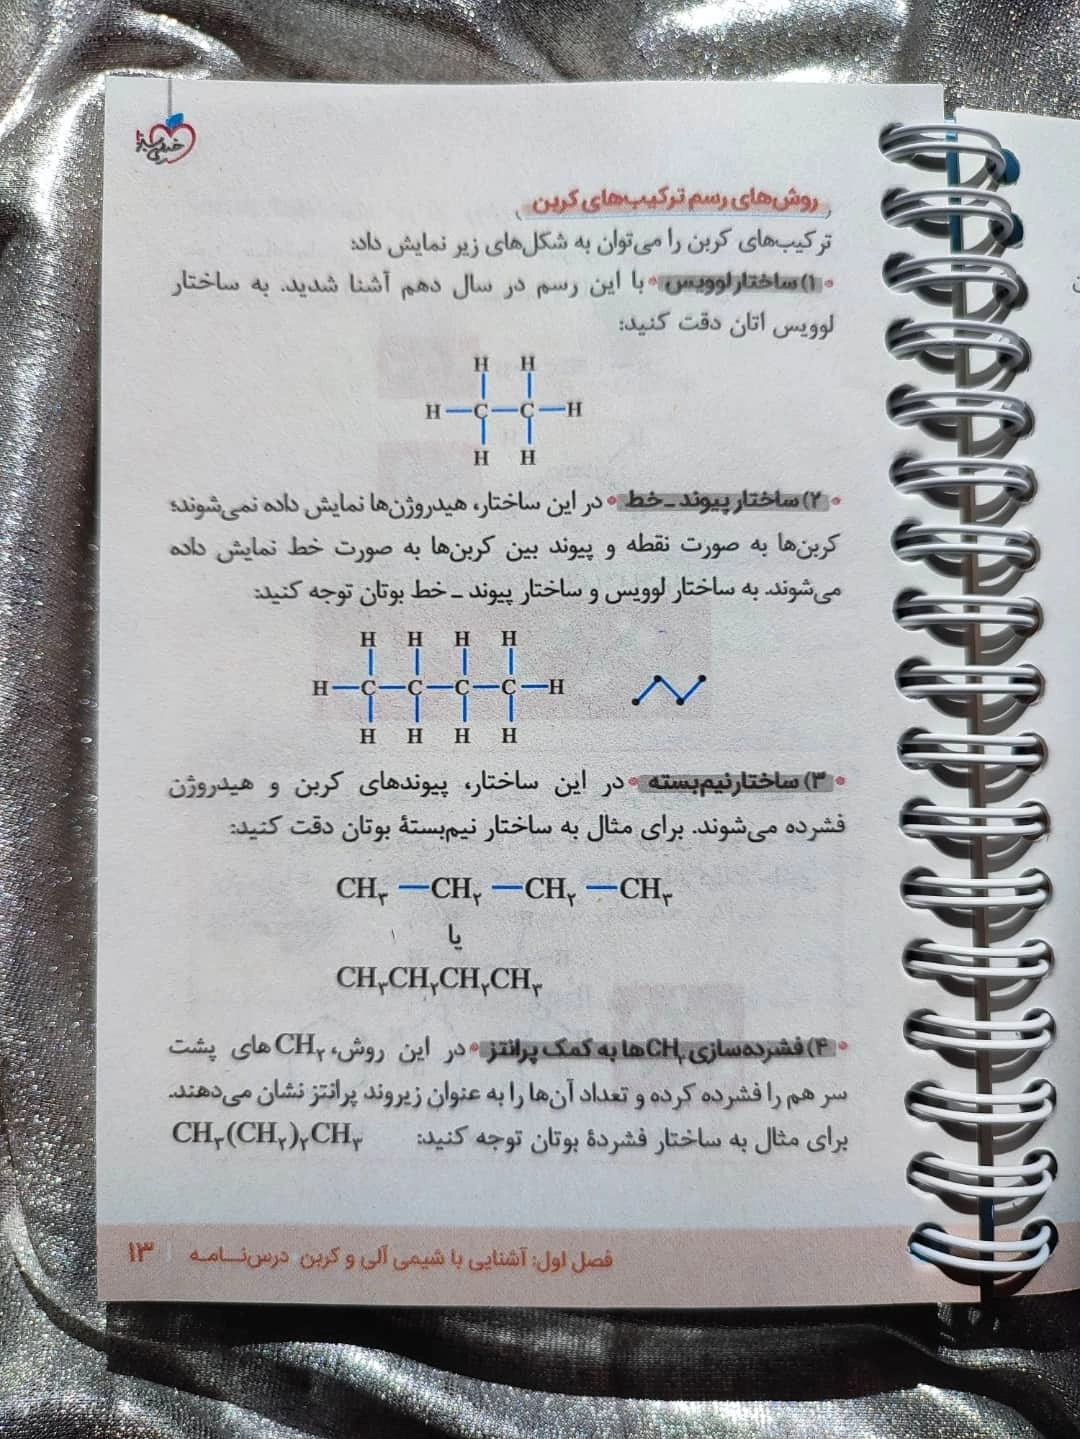 خیلی سبز
روش‌های رسم ترکیب‌های کربن
ترکیب‌های کربن را می‌توان به شکل‌های زیر نمایش داد:
۱) ساختار لوویس • با این رسم در سال دهم آشنا شدید. به ساختار
لوویس اتان دقت کنید:
H H
H—C—C—H
H H
۲) ساختار پیوند ـ خط • در این ساختار، هیدروژن‌ها نمایش داده نمی‌شوند؛
کربن‌ها به صورت نقطه و پیوند بین کربن‌ها به صورت خط نمایش داده
می‌شوند. به ساختار لوویس و ساختار پیوند ـ خط بوتان توجه کنید:
H H H H
H—C—C—C—C—H
H H H H
۳) ساختار نیم‌بسته • در این ساختار، پیوندهای کربن و هیدروژن
فشرده می‌شوند. برای مثال به ساختار نیم‌بستهٔ بوتان دقت کنید:
CH۳—CH۲—CH۲—CH۳
یا
CH۳CH۲CH۲CH۳
۴) فشرده‌سازی CH۲ها به کمک پرانتز • در این روش، CH۲های پشت
سر هم را فشرده کرده و تعداد آن‌ها را به عنوان زیروند پرانتز نشان می‌دهند.
برای مثال به ساختار فشردهٔ بوتان توجه کنید: CH۳(CH۲)۲CH۳
فصل اول: آشنایی با شیمی آلی و کربن درس‌نـــامـه | ۱۳